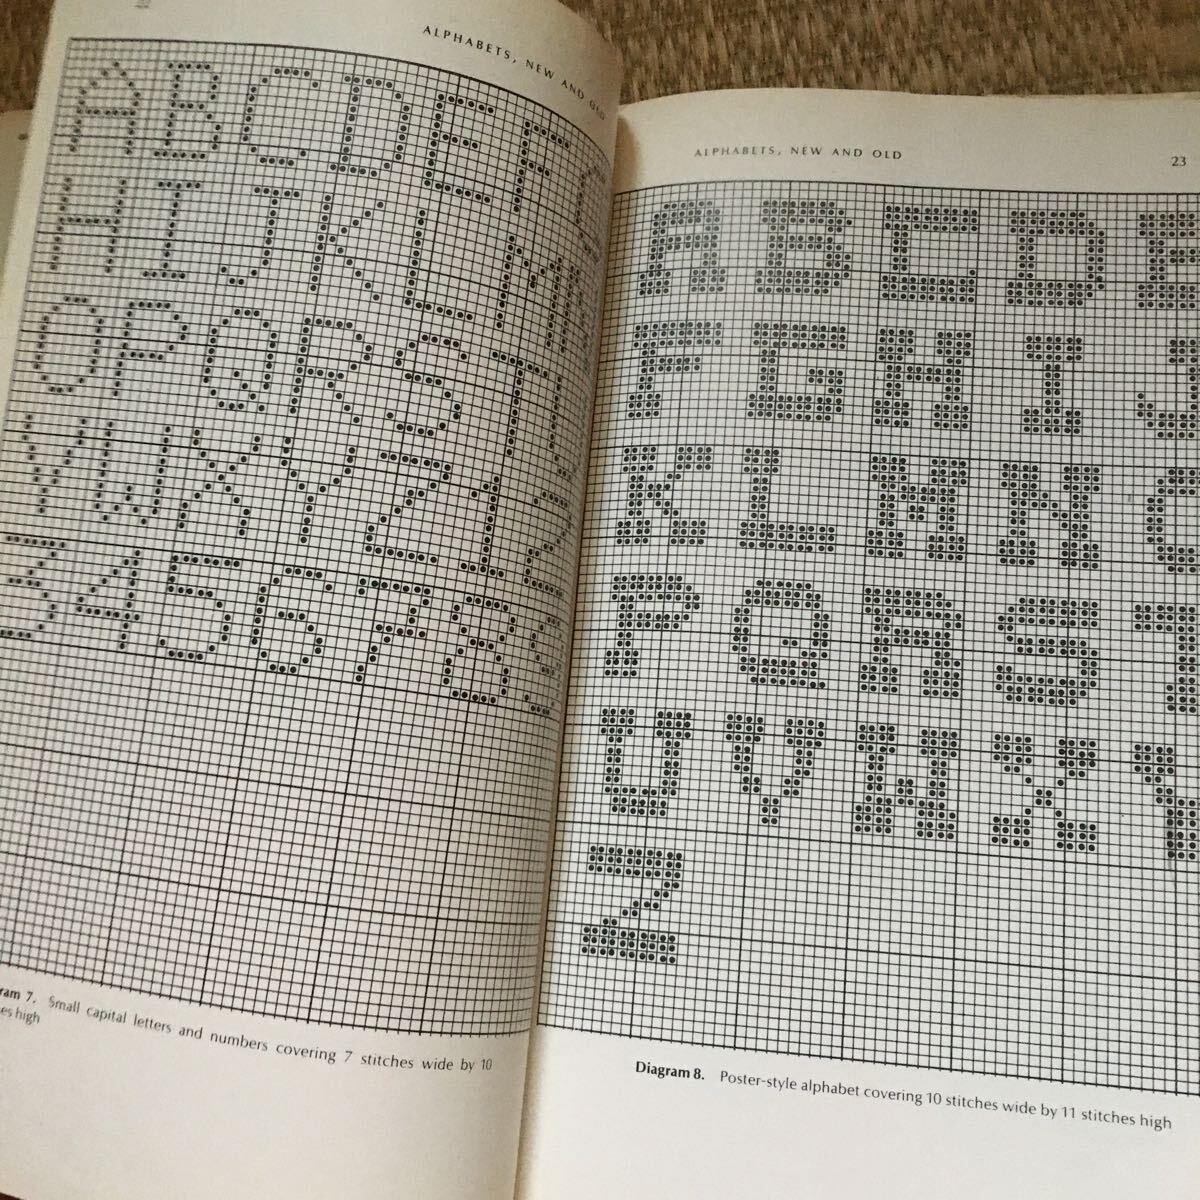 ALPHABETS, NEW AND OLD
A B C D E F
H I J K L M
O P Q R S T
V W X Y Z 1 2
3 4 5 6 7 8
7. Small capital letters and numbers covering 7 stitches wide by 10
high
ALPHABETS, NEW AND OLD
23
A B C D E
F G H I J
K L M N
P Q R S T
U V W X Y
Z
Diagram 8. Poster-style alphabet covering 10 stitches wide by 11 stitches high